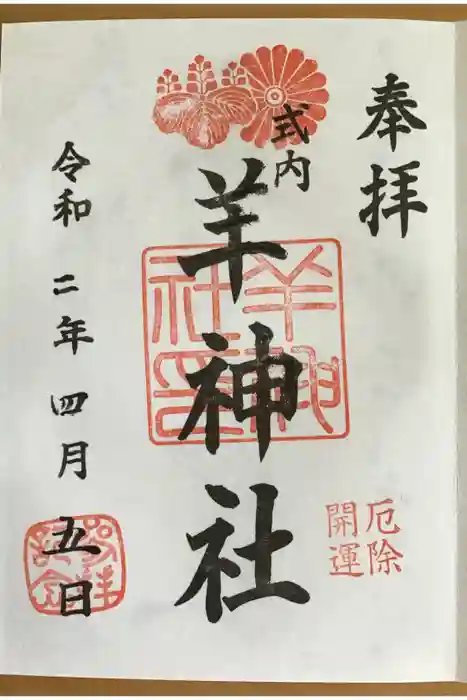 奉拝
式内
羊神社
厄除
開運
令和二年四月五日